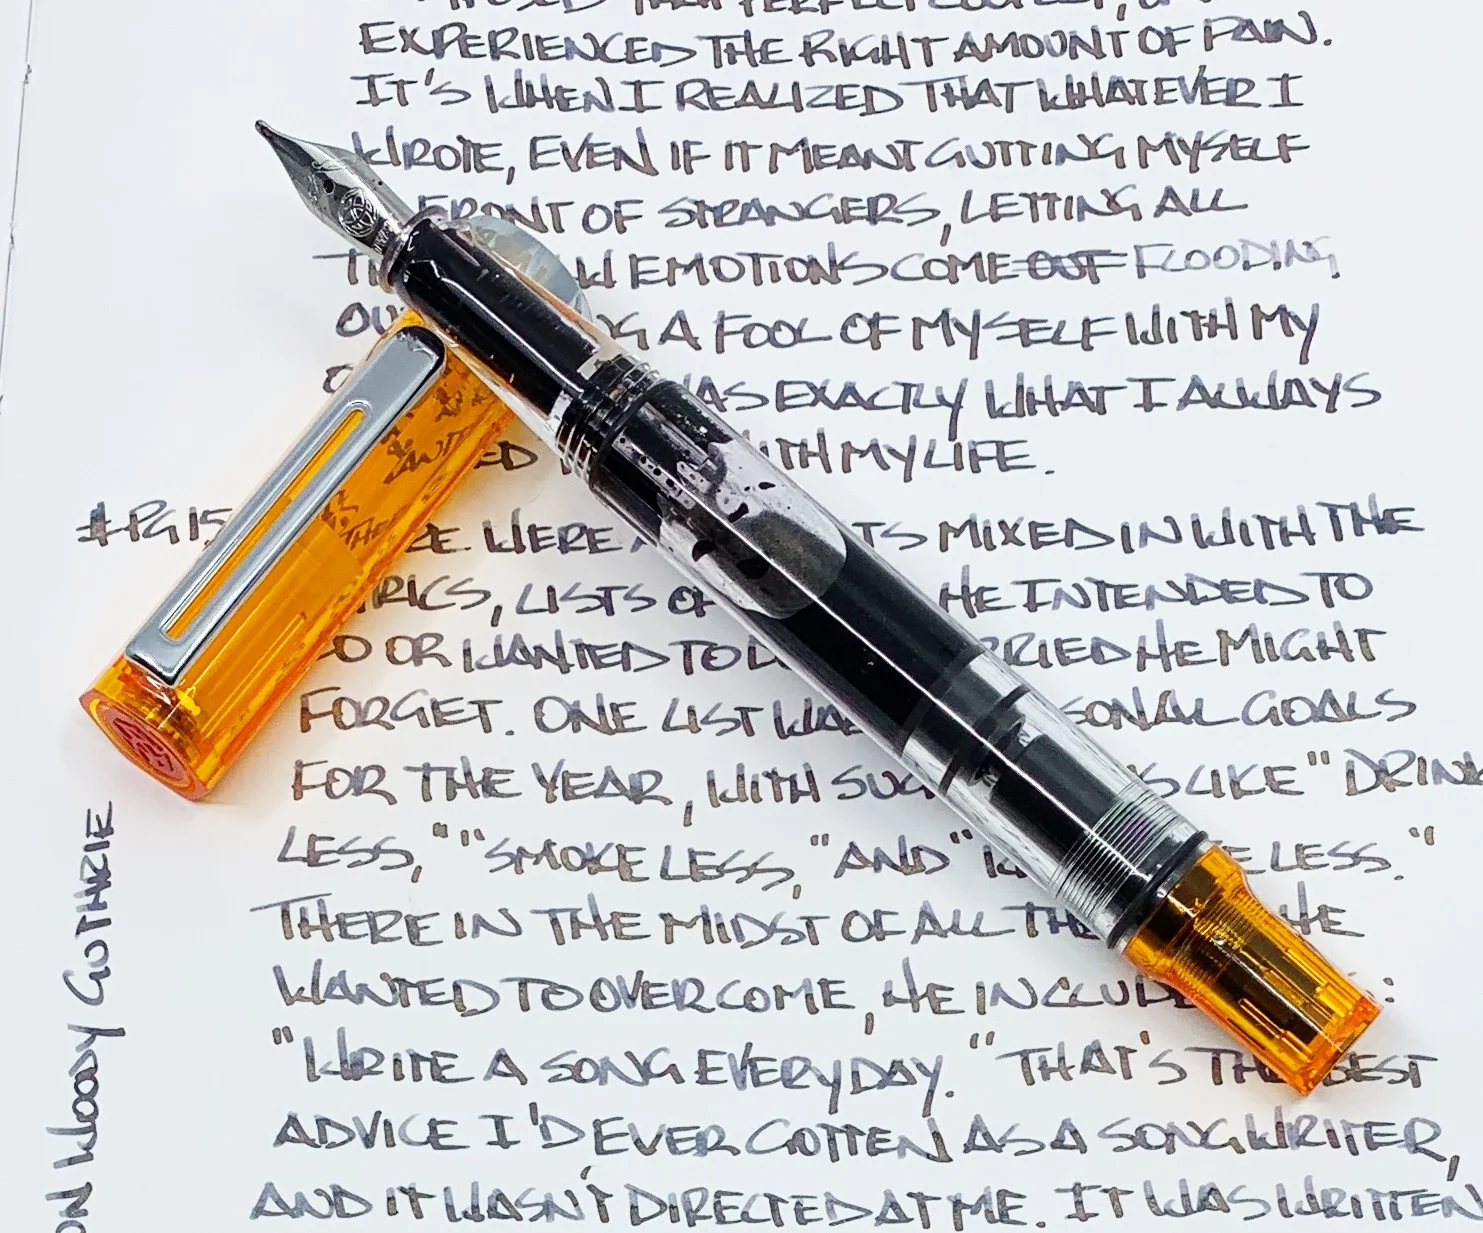 THAT PERFECT COUPLET, OR
EXPERIENCED THE RIGHT AMOUNT OF PAIN.
IT'S WHEN I REALIZED THAT WHATEVER I
WROTE, EVEN IF IT MEANT GUTTING MYSELF
FRONT OF STRANGERS, LETTING ALL
EMOTIONS COME OUT FLOODING
A FOOL OF MYSELF WITH MY
EXACTLY WHAT I ALWAYS
WITH MY LIFE.
#PG15 WERE MIXED IN WITH THE
LYRICS, LISTS OF HE INTENDED TO
DO OR WANTED TO HE MIGHT
FORGET. ONE LIST WAS PERSONAL GOALS
FOR THE YEAR, WITH SUCH LIKE "DRINK
LESS," "SMOKE LESS," "AND" LESS."
THERE IN THE MIDST OF ALL HE
WANTED TO OVERCOME, HE INCLUDED :
"WRITE A SONG EVERYDAY." THAT'S THE BEST
ADVICE I'D EVER GOTTEN AS A SONGWRITER,
AND IT WASN'T DIRECTED AT ME. IT WAS WRITTEN
ON WOODY GUTHRIE